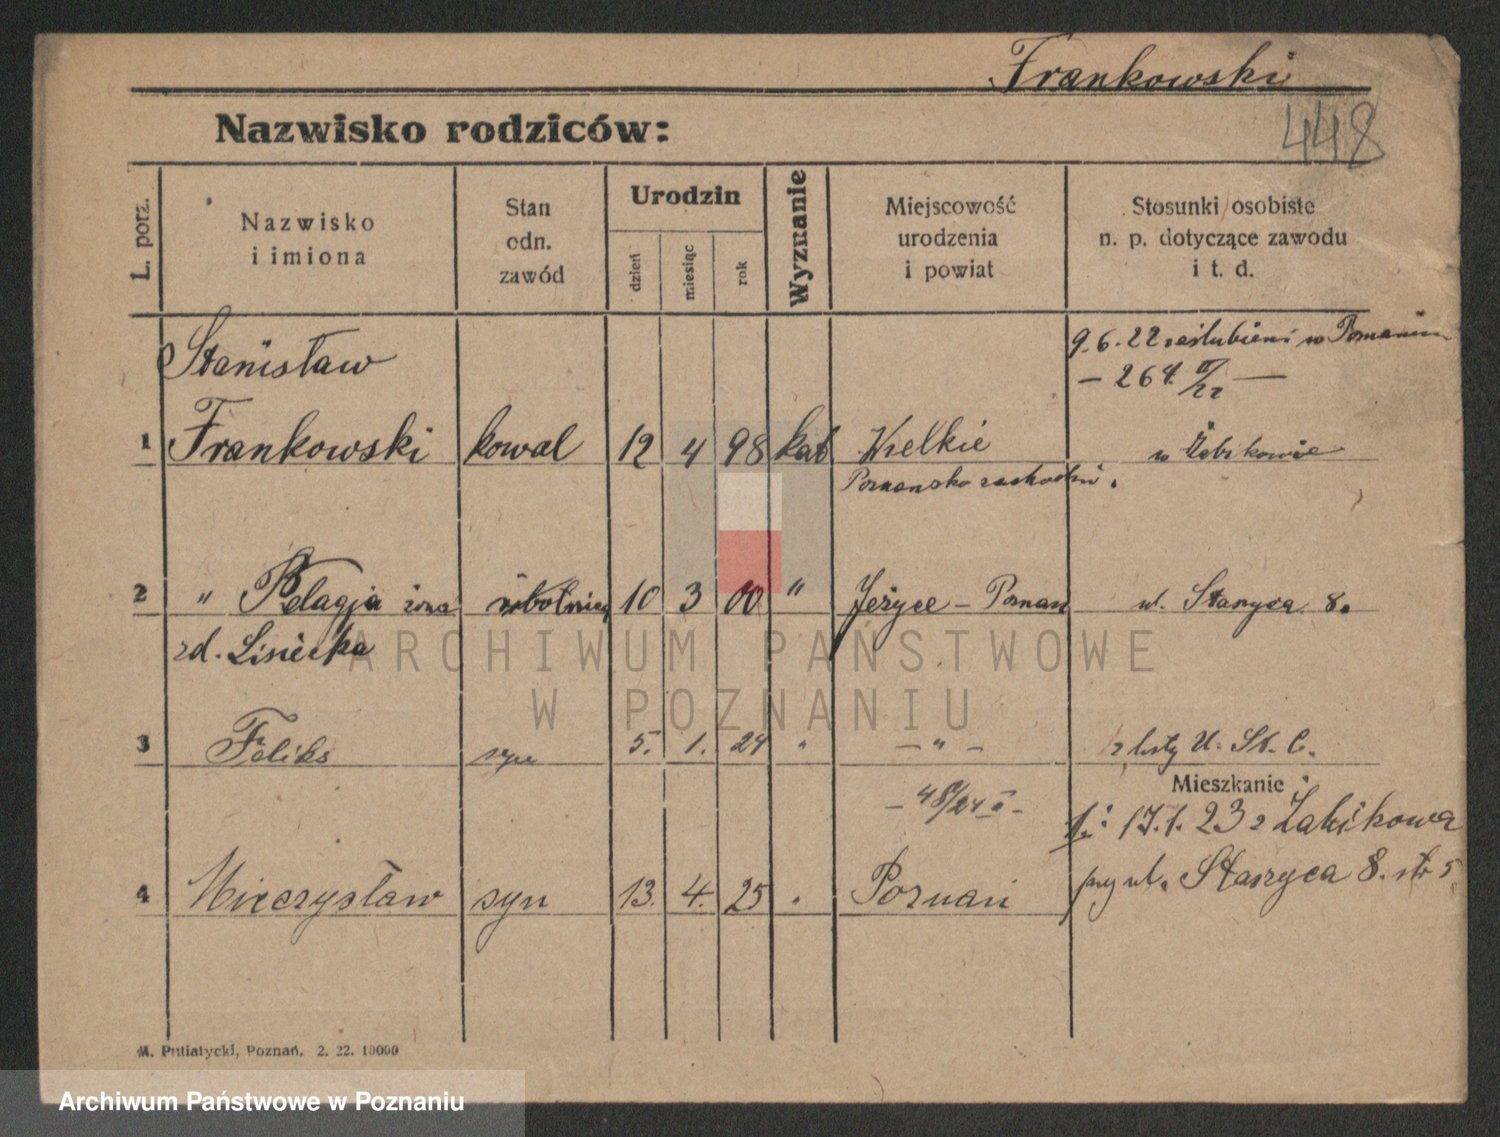 Frankowski
448
Nazwisko rodziców:
L. porz.
Nazwisko
i imiona
Stan
odn.
zawód
Urodzin
dzień
miesiąc
rok
Wyznanie
Miejscowość
urodzenia
i powiat
Stosunki osobiste
n. p. dotyczące zawodu
i t. d.
Stanisław
9.6.22 zaślubieni w Poznaniu
— 264 —
1 Frankowski kowal 12 4 98 kat Wielkie w Żabikowie
Poznańsko zachodni.
2 " Pelagja żona robotnica 10 3 00 " Jeżyce - Poznań ul. Staszyca 8.
zd. Lisiecka
3 Feliks syn 5. 1. 24 " - " - z listy U. St. C.
- 48/24 I -
Mieszkanie
17.1.23 z Żabikowa
przy ul. Staszyca 8. 5
4 Mieczysław syn 13. 4. 25 " Poznań
M. Putiatycki, Poznań. 2. 22. 10000
ARCHIWUM PAŃSTWOWE
W POZNANIU
Archiwum Państwowe w Poznaniu